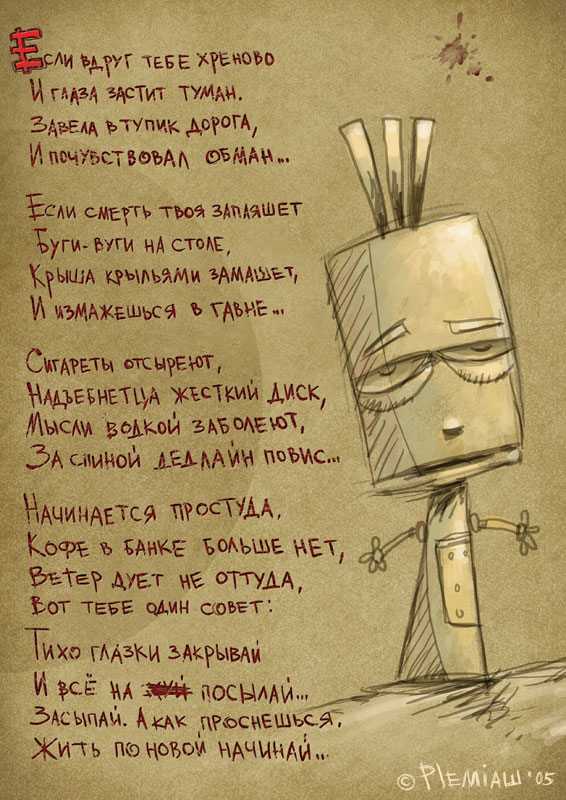 Если вдруг тебе хреново
И глаза застит туман.
Завела в тупик дорога,
И почувствовал обман...
Если смерть твоя запляшет
Буги-вуги на столе,
Крыша крыльями замашет,
И измажешься в гавне...
Сигареты отсыреют,
Надъебнетца жесткий диск,
Мысли водкой заболеют,
За спиной дедлайн повис...
Начинается простуда,
Кофе в банке больше нет,
Ветер дует не оттуда,
Вот тебе один совет:
Тихо глазки закрывай
И всё на хуй посылай...
Засыпай. А как проснешься,
Жить по новой начинай...
© Plemiaш '05